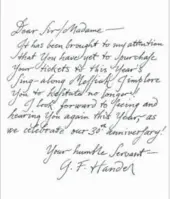 Dear Sir/Madame—
It has been brought to my attention
that you have yet to purchase
your tickets to this year's
Sing-along Messiah. I implore
you to hesitate no longer!
I look forward to seeing and
hearing you again this year, as
we celebrate our 30th anniversary!
Your humble Servant—
G. F. Handel